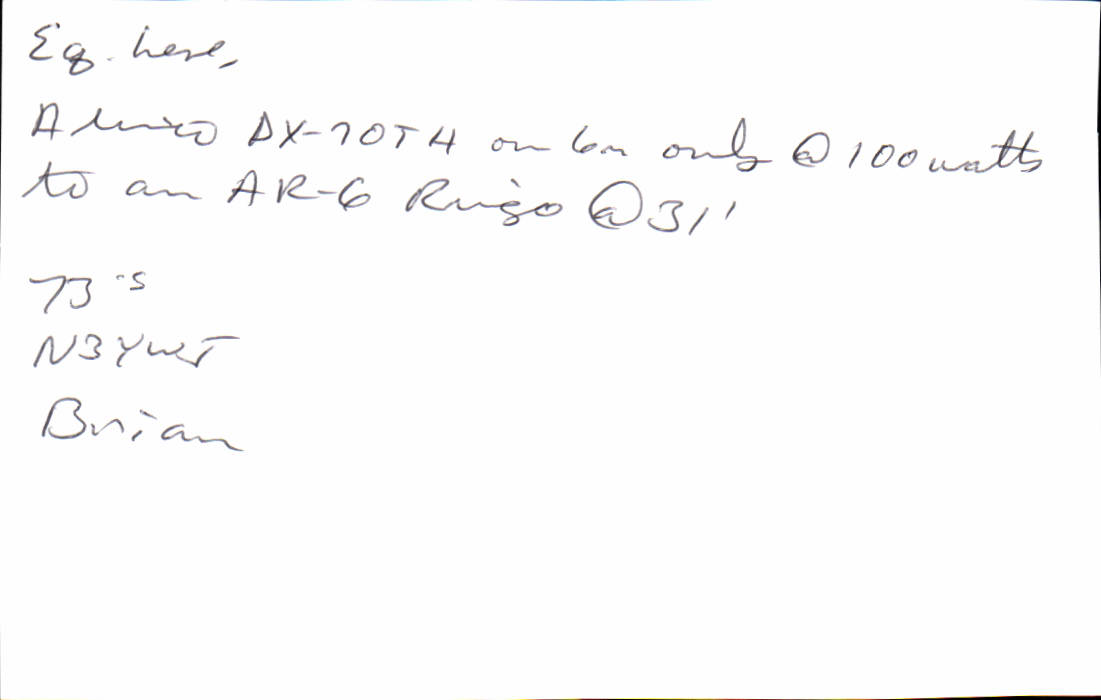 Eq. here,
Alinco DX-70TH on 6m only @ 100 watts
to an AR-6 Ringo @ 31'
73's
N3YWT
Brian